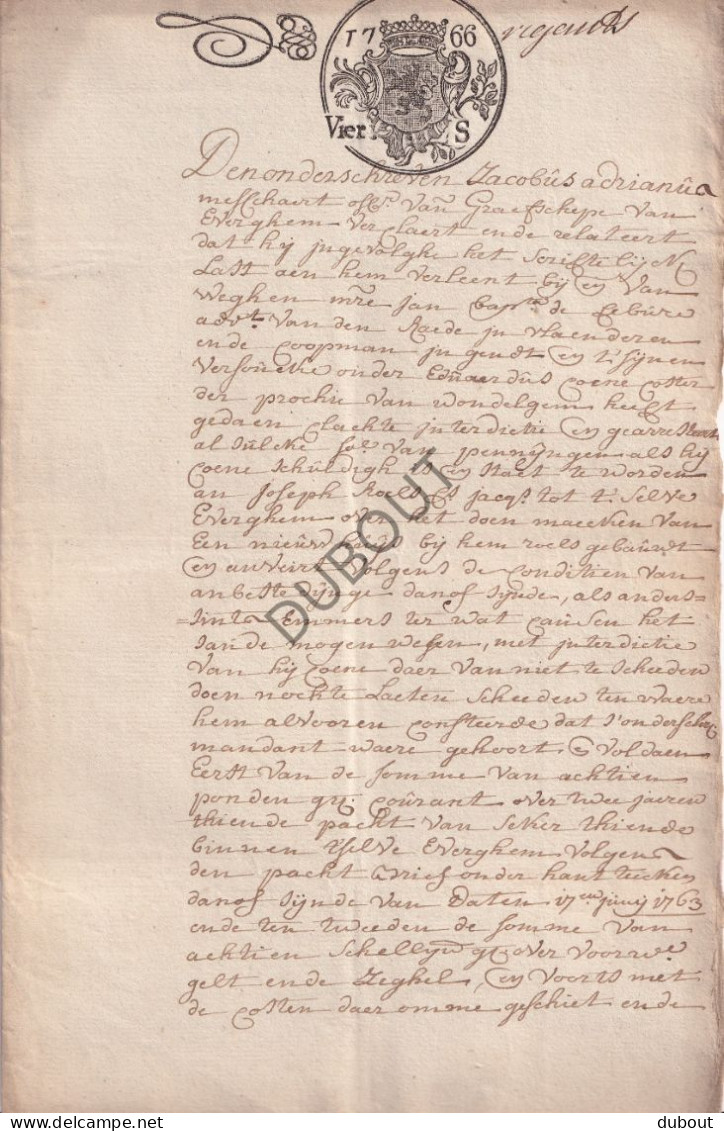 17 66
Vier S
Den onderschreven Jacobus adrianus
messchaert offr. Van Graefschepe van
Everghem verclaert ende relateert
dat hij ingevolghe het schrifte lijck
Last aen hem verleent bij en van
Weghen mre jan bapta. de
advt. van den Raede in vlaenderen
ende coopman in gendt en t'sijnen
versoucke onder Eduaerdus coene coster
der prochie van wondelgem heeft
gedaen clachte interdictie en gearresteert
al sulcke so. van penningen als hij
coene schuldigh is en staet te worden
an Joseph Roels fs jacqs. tot t'selve
Everghem over het doen maecken van
Een nieuw huys bij hem roels gebauwt
en anveirt volgens de conditien van
anbestedinge danof sijnde, als anders=
=sints Emmers ter wat causen het
saude mogen wesen, met interdictie
van hij coene daer van niet te scheeden
doen nochte Laeten scheeden ten waere
hem alvooren consteerde dat d'onderschr.
mandant waere gehoort en voldaen
Eerst van de somme van achtien
ponden gr. courant over twee jaeren
thiende pacht van seker thiende
binnen t'selve Everghem volgens
den pacht brief onder hant teecken
danof sijnde van daten 17en junij 1763
ende ten tweeden de somme van
achtien schellyn gr. over voorwe.
gelt ende Zeghel, en voorts met
de costen daer omme geschiet ende
DUBOUT
dubout
dubout